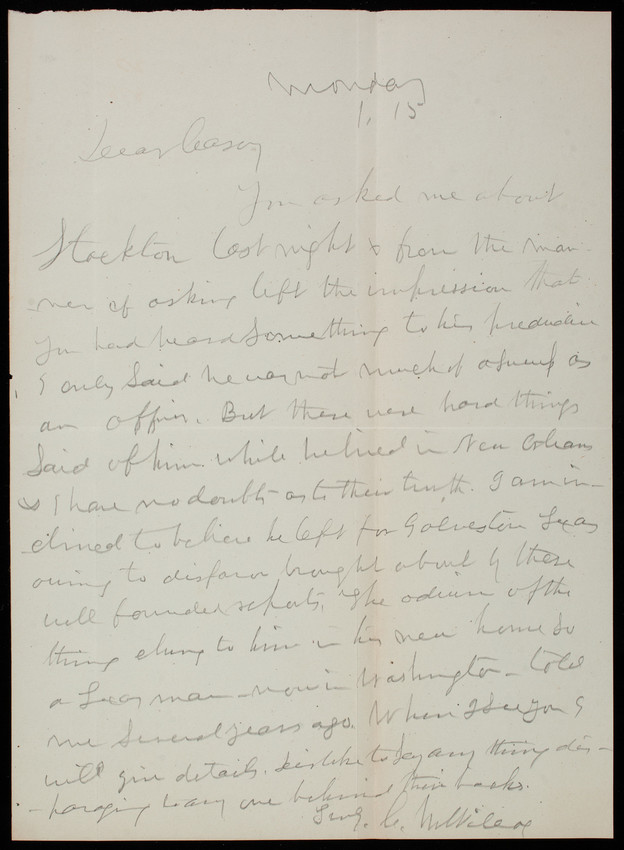 Monday
1. 15
Dear Casey
You asked me about
Stockton last night & from the man-
ner of asking left the impression that
you had heard something to his prejudice
I only said he was not much of a as
an officer. But there were hard things
said of him while he lived in New Orleans
& I have no doubt as to their truth. I am in-
clined to believe he left for Galveston Texas
owing to disfavor brought about by these
well founded reports. The odium of the
thing clung to him in his new home so
a Texas man - now in Washington - told
me several years ago. When I see you I
will give details. Dislike to say any thing dis-
-paraging to any one behind their backs.
C. M. Wilcox